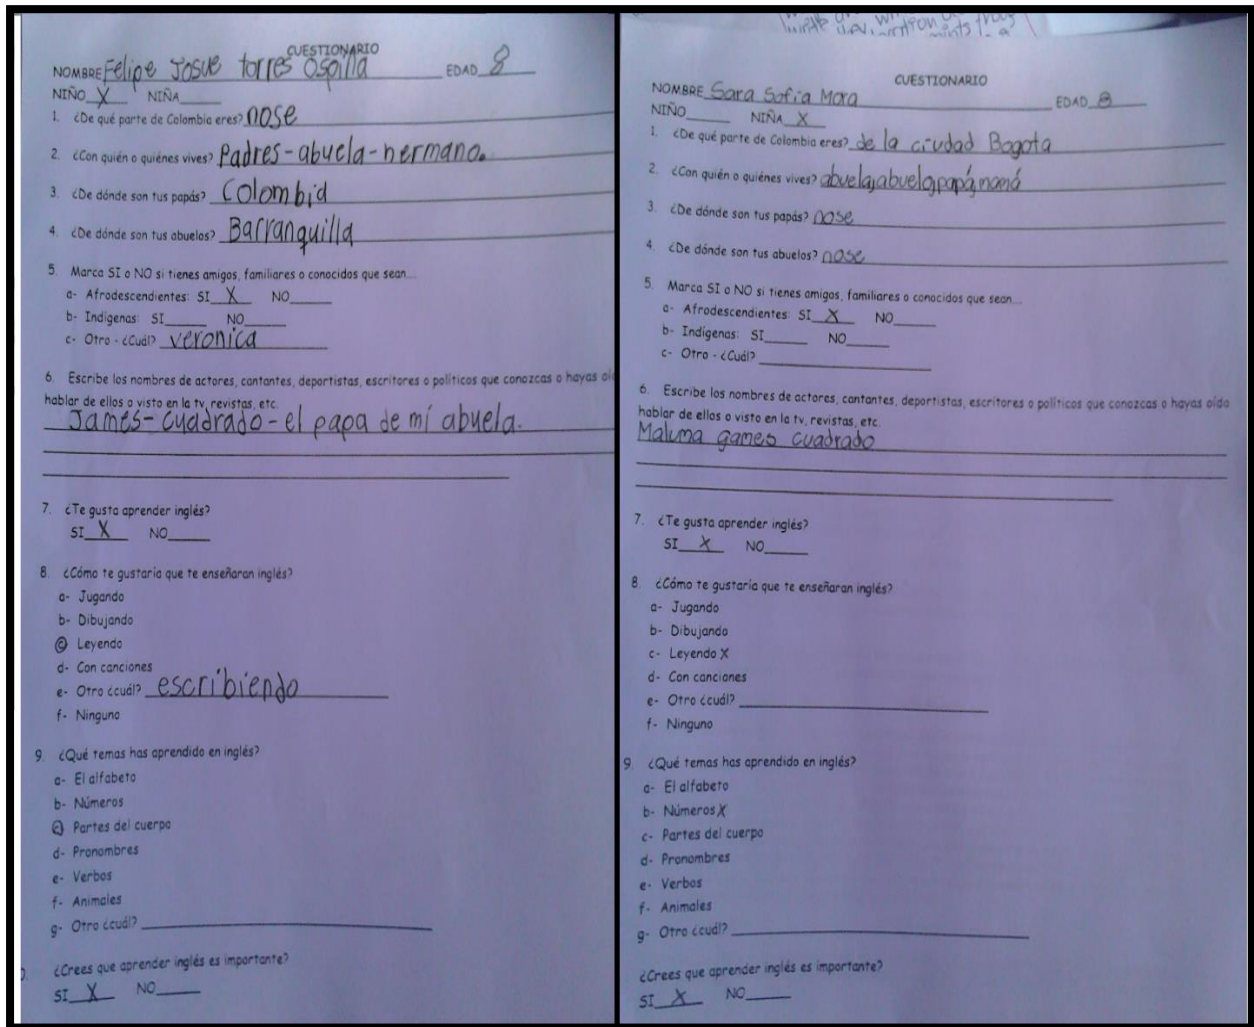 CUESTIONARIO
NOMBRE Felipe Josue torres Ospina EDAD 8
NIÑO X NIÑA
1. ¿De qué parte de Colombia eres? nose
2. ¿Con quién o quiénes vives? Padres-abuela-hermano.
3. ¿De dónde son tus papás? Colombia
4. ¿De dónde son tus abuelos? Barranquilla
5. Marca SI o NO si tienes amigos, familiares o conocidos que sean...
a- Afrodescendientes: SI X NO
b- Indígenas: SI NO
c- Otro - ¿Cuál? veronica
6. Escribe los nombres de actores, cantantes, deportistas, escritores o políticos que conozcas o hayas oid
hablar de ellos o visto en la tv, revistas, etc.
James-cuadrado-el papa de mi abuela.
7. ¿Te gusta aprender inglés?
SI X NO
8. ¿Cómo te gustaría que te enseñaran inglés?
a- Jugando
b- Dibujando
c Leyendo
d- Con canciones
e- Otro ¿cuál? escribiendo
f- Ninguno
9. ¿Qué temas has aprendido en inglés?
a- El alfabeto
b- Números
c Partes del cuerpo
d- Pronombres
e- Verbos
f- Animales
g- Otro ¿cuál?
¿Crees que aprender inglés es importante?
SI X NO
CUESTIONARIO
NOMBRE Sara Sofia Mora EDAD 8
NIÑO NIÑA X
1. ¿De qué parte de Colombia eres? de la ciudad Bogota
2. ¿Con quién o quiénes vives? abuela,abuelo,papá,mamá
3. ¿De dónde son tus papás? nose
4. ¿De dónde son tus abuelos? nose
5. Marca SI o NO si tienes amigos, familiares o conocidos que sean...
a- Afrodescendientes: SI X NO
b- Indígenas: SI NO
c- Otro - ¿Cuál?
6. Escribe los nombres de actores, cantantes, deportistas, escritores o políticos que conozcas o hayas oido
hablar de ellos o visto en la tv, revistas, etc.
Maluma games cuadrado
7. ¿Te gusta aprender inglés?
SI X NO
8. ¿Cómo te gustaría que te enseñaran inglés?
a- Jugando
b- Dibujando
c- Leyendo X
d- Con canciones
e- Otro ¿cuál?
f- Ninguno
9. ¿Qué temas has aprendido en inglés?
a- El alfabeto
b- Números X
c- Partes del cuerpo
d- Pronombres
e- Verbos
f- Animales
g- Otro ¿cuál?
¿Crees que aprender inglés es importante?
SI X NO